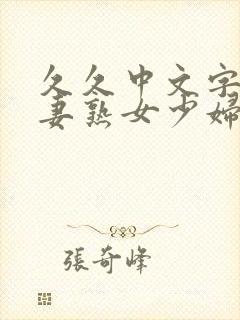 久久中文字
妻熟女少婦
張奇峰